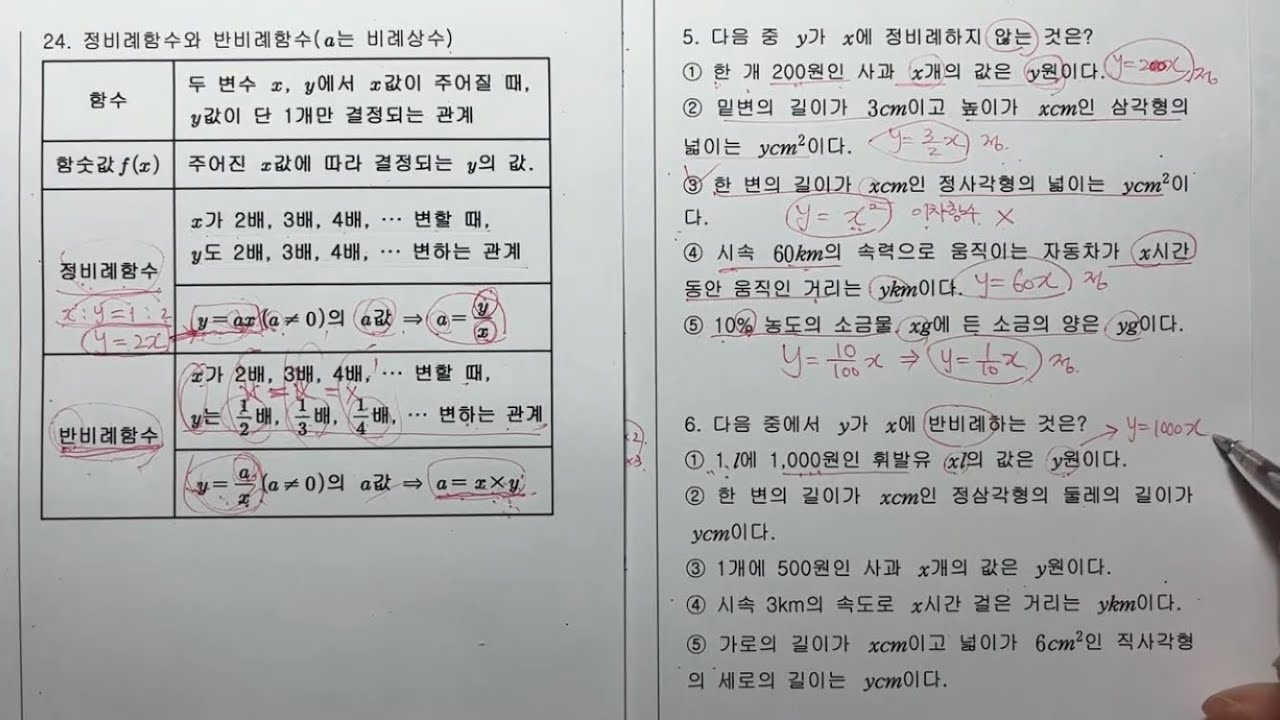 24. 정비례함수와 반비례함수(a는 비례상수)
함수
두 변수 x, y에서 x값이 주어질 때,
y값이 단 1개만 결정되는 관계
함숫값 f(x)
주어진 x값에 따라 결정되는 y의 값.
정비례함수
x : y = 1 : 2
y = 2x
x가 2배, 3배, 4배, … 변할 때,
y도 2배, 3배, 4배, … 변하는 관계
y = ax (a ≠ 0)의 a값 ⇒ a = y/x
반비례함수
x가 2배, 3배, 4배, … 변할 때,
y는 1/2배, 1/3배, 1/4배, … 변하는 관계
y = a/x (a ≠ 0)의 a값 ⇒ a = x × y
5. 다음 중 y가 x에 정비례하지 않는 것은?
① 한 개 200원인 사과 x개의 값은 y원이다. y=200x 정
② 밑변의 길이가 3cm이고 높이가 xcm인 삼각형의
넓이는 ycm²이다. y = 3/2 x 정.
③ 한 변의 길이가 xcm인 정사각형의 넓이는 ycm²이
다. y = x² 이차함수 ×
④ 시속 60km의 속력으로 움직이는 자동차가 x시간
동안 움직인 거리는 ykm이다. y = 60x 정
⑤ 10% 농도의 소금물 xg에 든 소금의 양은 yg이다.
y = 10/100 x ⇒ y = 1/10 x 정.
6. 다음 중에서 y가 x에 반비례하는 것은? → y=1000x
① 1l에 1,000원인 휘발유 xl의 값은 y원이다.
② 한 변의 길이가 xcm인 정삼각형의 둘레의 길이가
ycm이다.
③ 1개에 500원인 사과 x개의 값은 y원이다.
④ 시속 3km의 속도로 x시간 걸은 거리는 ykm이다.
⑤ 가로의 길이가 xcm이고 넓이가 6cm²인 직사각형
의 세로의 길이는 ycm이다.